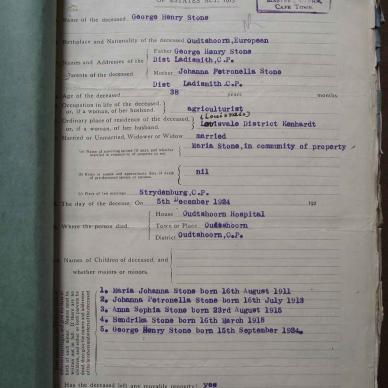 OF ESTATES ACT, 1913
CAPE TOWN.
Name of the deceased George Henry Stone
Birthplace and Nationality of the deceased Oudtshoorn, European
Father George Henry Stone
Names and Addresses of the Dist Ladismith, C.P.
Parents of the deceased Mother Johanna Petronella Stone
Dist Ladismith C.P.
Age of the deceased 38 years months
Occupation in life of the deceased,
or, if a woman, of her husband. agriculturist
(Louisvale)
Ordinary place of residence of the deceased,
or, if a woman, of her husband. Louisvale District Kenhardt
Married or Unmarried, Widower or Widow married
Maria Stone, in community of property
nil
(c) Place of last marriage Strydenburg, C.P.
The day of the decease. On 5th December 1924 192
House Oudtshoorn Hospital
Where the person died. Town or Place Oudtshoorn
District Oudtshoorn, C.P.
Names of Children of deceased, and
whether majors or minors.
1. Maria Johanna Stone born 16th August 1911
2. Johanna Petronella Stone born 16th July 1913
3. Anna Sophia Stone born 23rd August 1915
4. Hendrika Stone born 16th March 1918
5. George Henry Stone born 15th September 1924.
Has the deceased left any movable property? yes